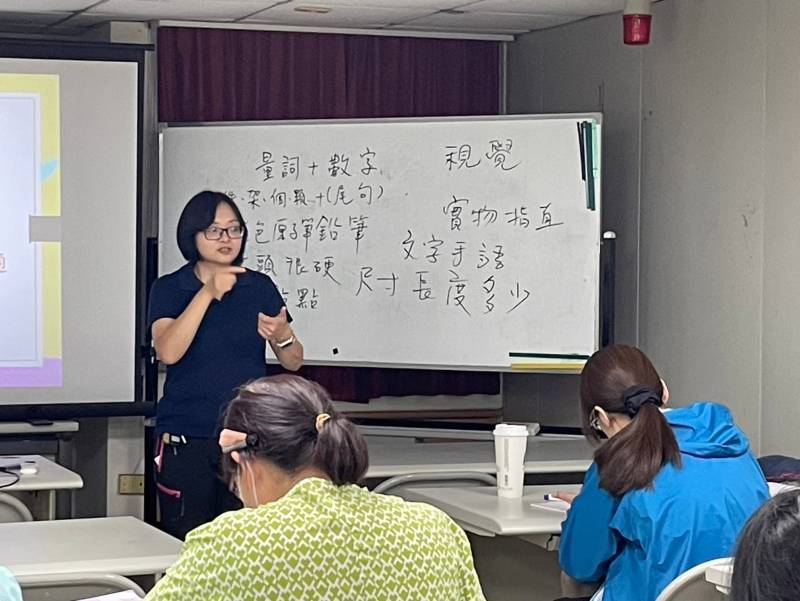 量詞+數字
視覺
架、個、顆+(尾句)
實物指直
色原彈鉛筆
文字手語
頭很硬
尺寸長度多少
點